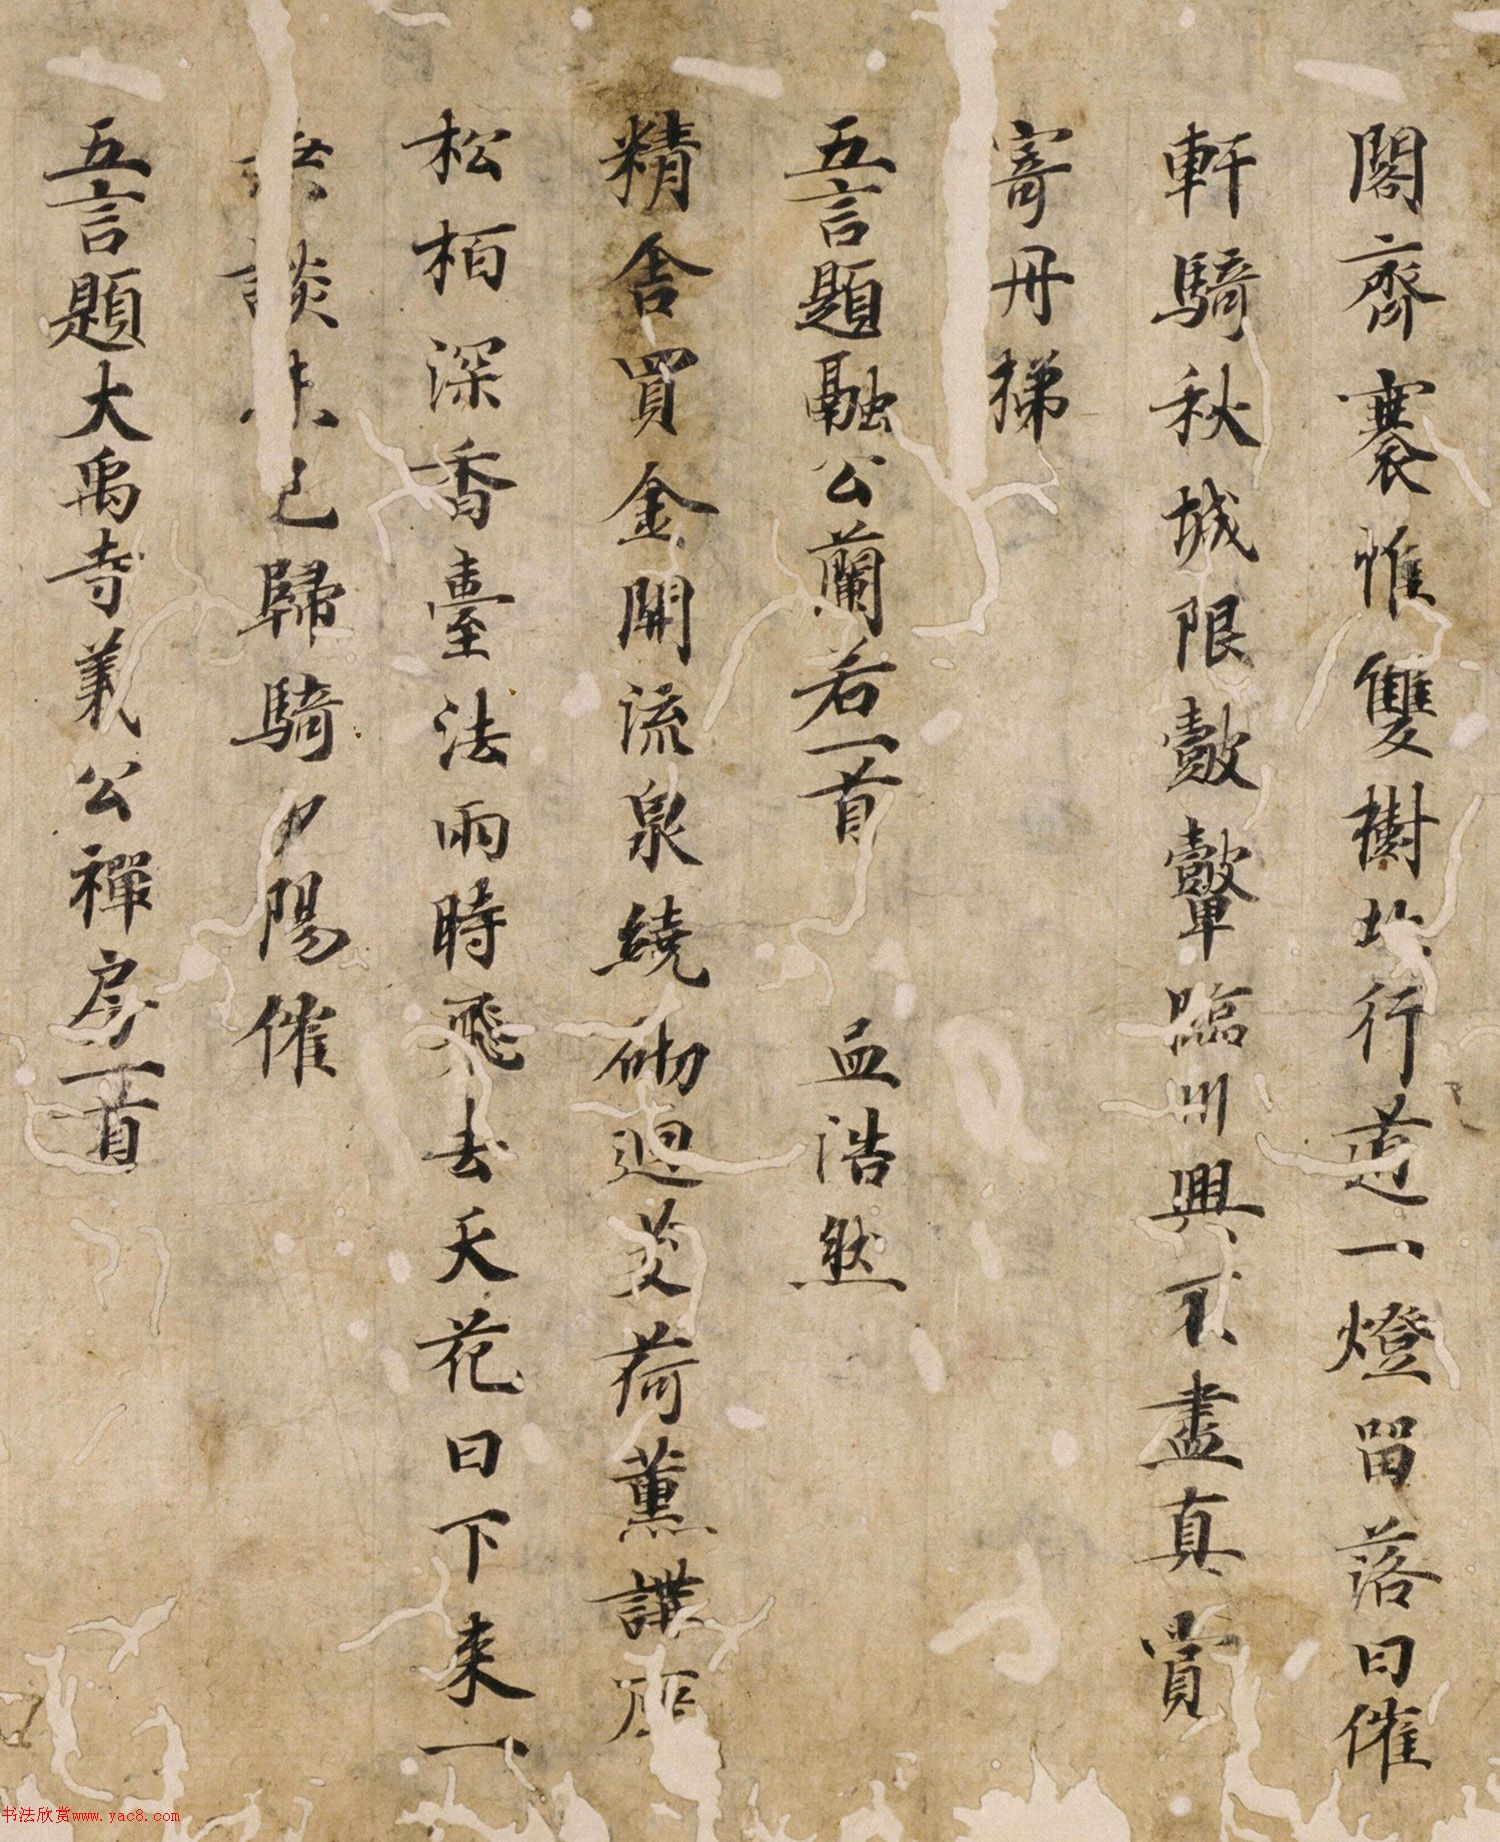 閣齊褰帷雙樹行道一燈留落日催
軒騎秋城限鼓鼙臨川興不盡真賞
寄丹梯
五言題融公蘭若一首 孟浩然
精舍買金開流泉繞砌迴芰荷薰講座
松柏深香臺法雨時飛去天花日下來一
談未已歸騎夕陽催
五言題大禹寺義公禪房一首
书法欣赏www.yac8.com